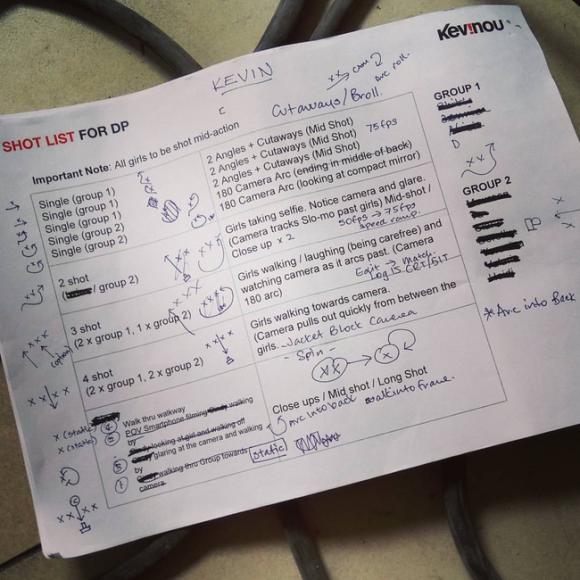 Kev!nou
KEVIN
SHOT LIST FOR DP
Cutaways/Broll.
arc roll.
Important Note: All girls to be shot mid-action
GROUP 1
D
Single (group 1)
Single (group 1)
Single (group 1)
Single (group 2)
Single (group 2)
2 Angles + Cutaways (Mid Shot)
2 Angles + Cutaways (Mid Shot)
2 Angles + Cutaways (Mid Shot)
75fps
180 Camera Arc (ending in middle of back)
180 Camera Arc (looking at compact mirror)
GROUP 2
2 shot
( / group 2)
Girls taking selfie. Notice camera and glare.
(Camera tracks Slo-mo past girls) Mid-shot /
Close up x 2
50fps → 75fps
speed ramp.
3 shot
(2 x group 1, 1 x group 2)
Girls walking / laughing (being carefree) and
watching camera as it arcs past. (Camera
180 arc)
4 shot
(2 x group 1, 2 x group 2)
Girls walking towards camera.
(Camera pulls out quickly from between the
girls.
Jacket Block Camera
- Spin -
* Arc into Back
x (static)
x (static)
Walk thru walkway
POV Smartphone filming walking
by
looking at girl and walking off
glaring at the camera and walking
by
walking thru Group towards
camera.
static
Close ups / Mid shot / Long Shot
Arc into back
walk into frame.